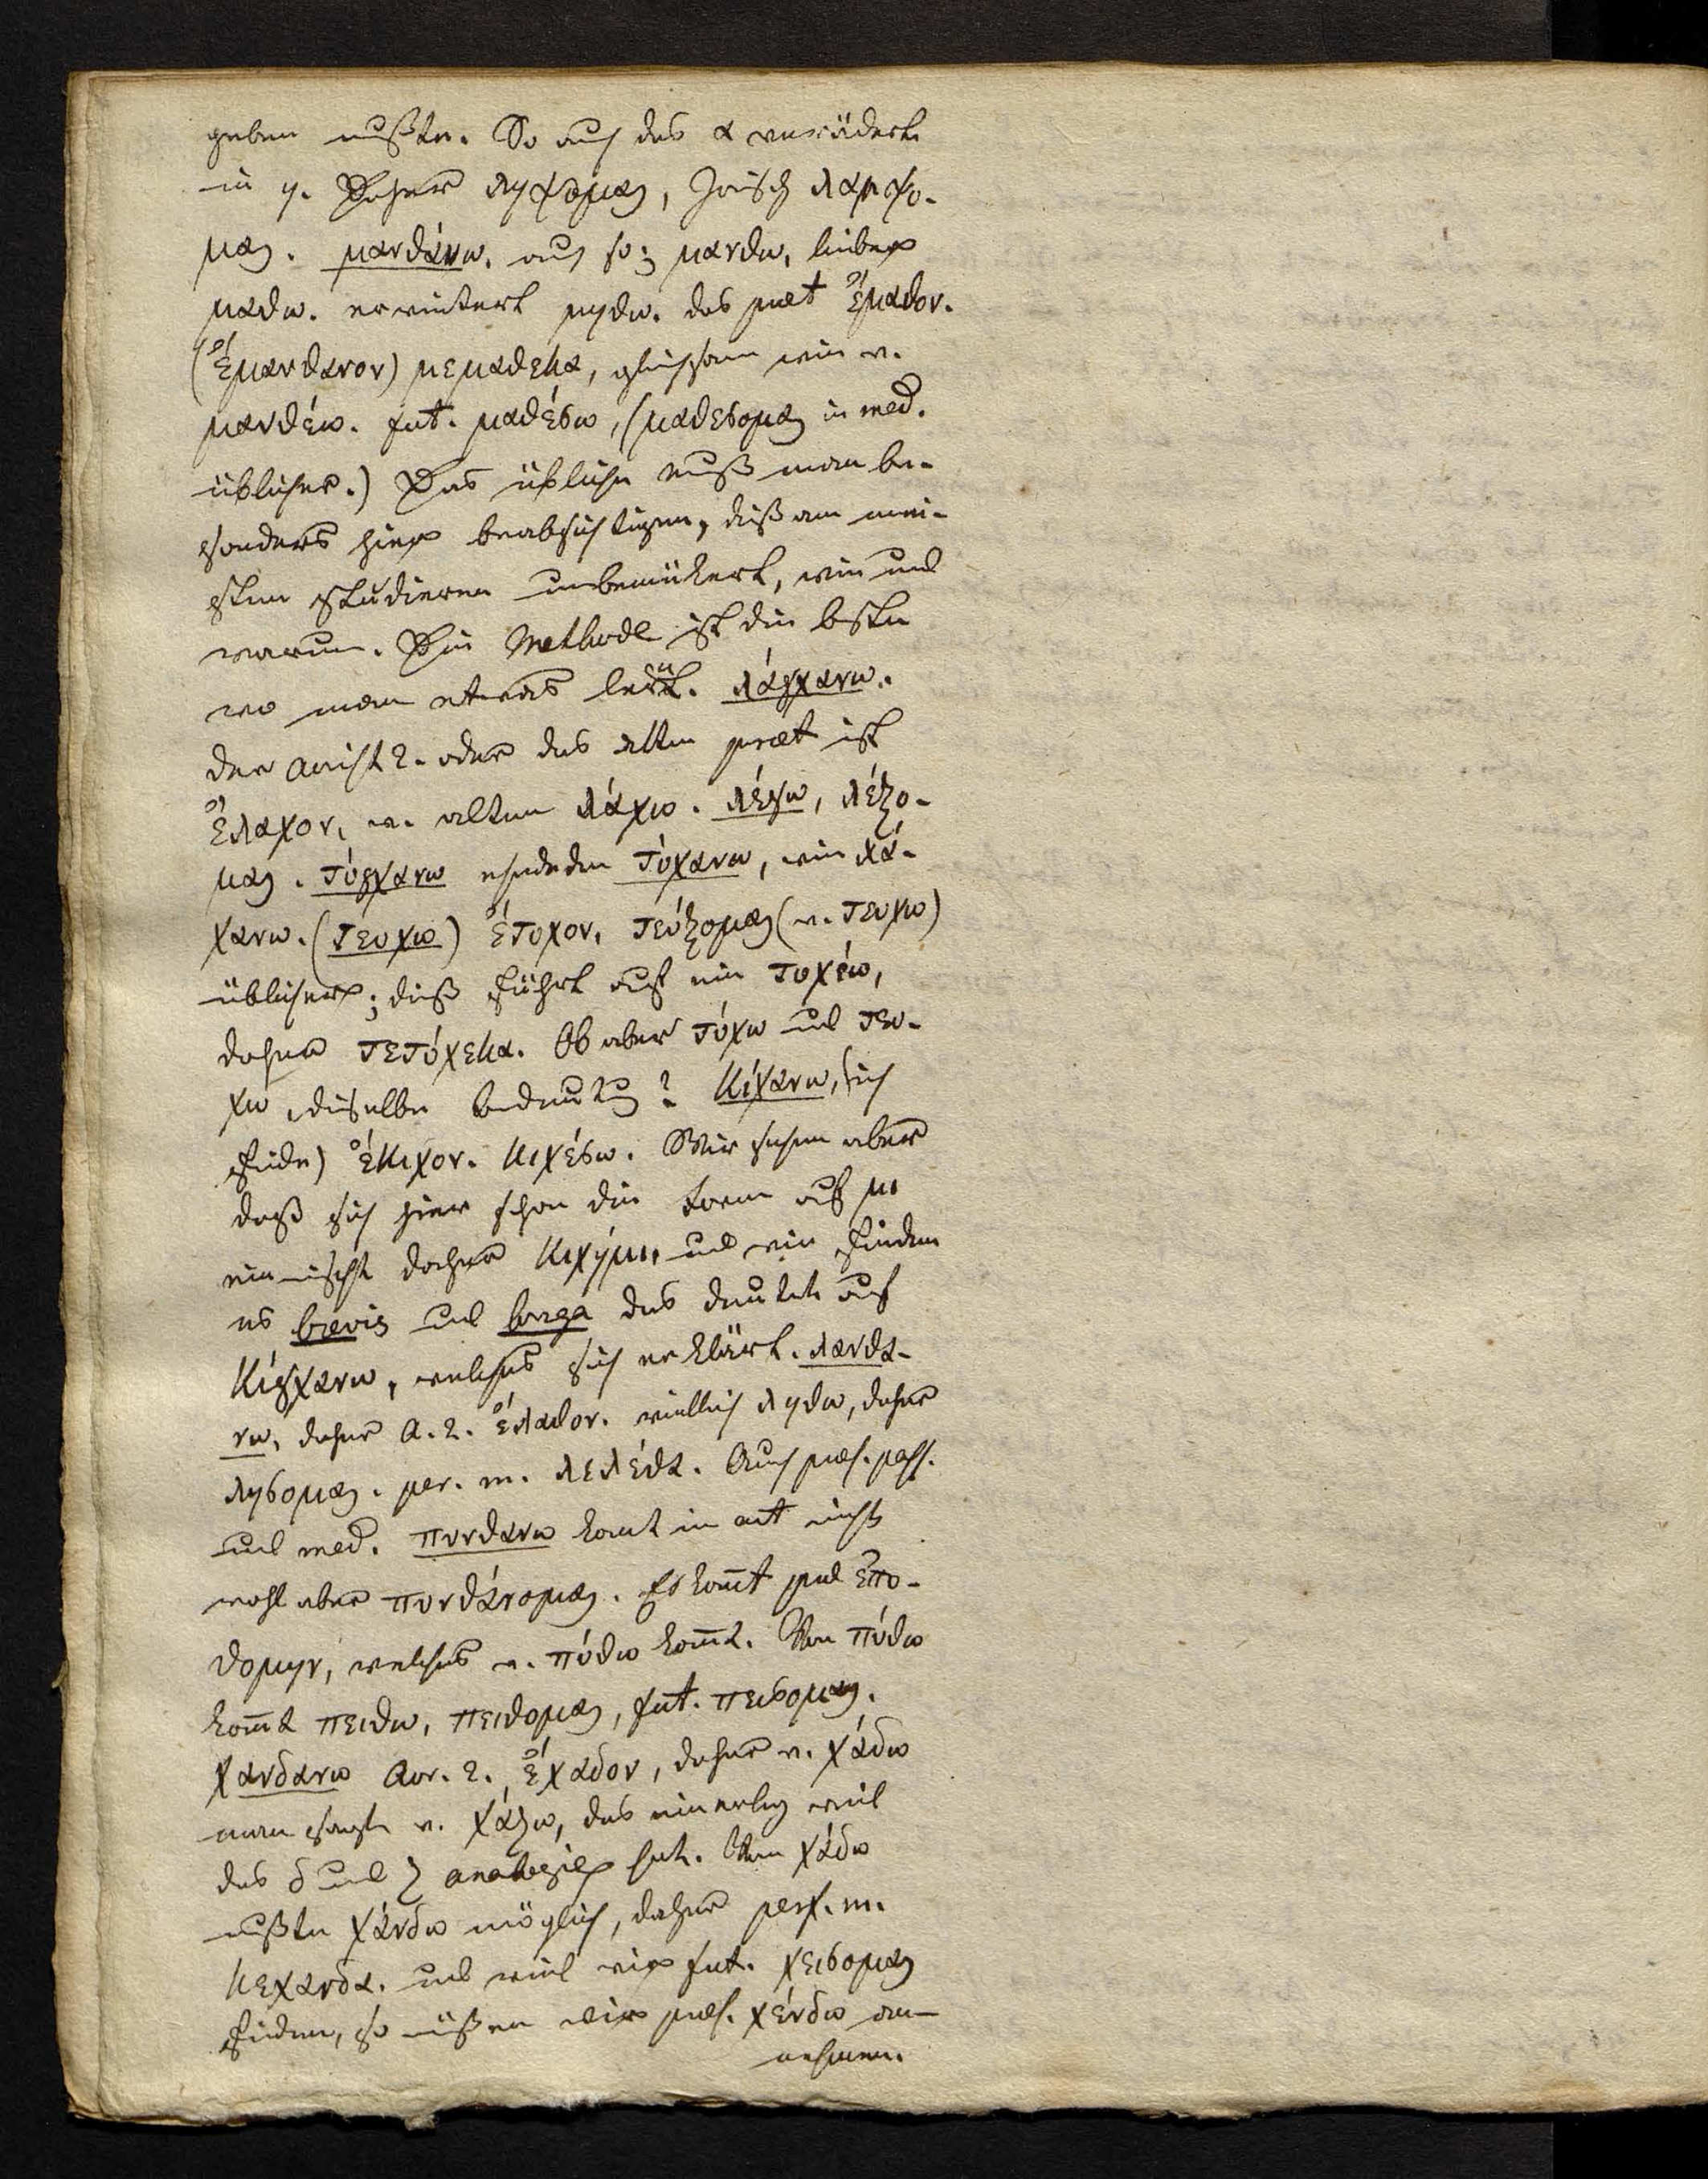 geben mußte. So auch das α verändert
in η. Daher ληψομαι, Jonisch λαμψο-
μαι. μανθάνω. auch so; μανθω, lieber
μαθω. erweitert μηθω. das praet ἔμαθον.
(ἔμανθανον) μεμαθεκα, gleichsam wie v.
μανθέω. fut. μαθέσω, (μαθεσομαι in med.
üblicher.) Das übliche muß man be-
sonders hier beabsichtigen, dieß am mei-
sten studieren unbekümmert, wie und
warum. Die Methode ist die beste
wo man etwas lernt. λάγχανω.
der Aorist 2. oder das alte praet ist
ἔλαχον, v. altem λάχω. λέγω, λέξο-
μαι. τύγχανω ehedem τύχανω, wie λά-
χανω. (τευχω) ἔτυχον, τεύξομαι (v. τευχω)
üblicher; dieß führt auf ein τυχέω,
daher τετύχεκα. Ob aber τύχω und τευ-
χω dieselbe Bedeutung? κίχανω, (ich
finde) ἔκιχον. κιχέσω. Wir sehen aber
daß sich hier schon die Form auf μι
einmischt daher κιχημι, und wir finden
es brevis und longa das deutet auf
κίγχανω, welches sich erklärt. λανθα-
νω, daher A. 2. ἔλαθον. vielleich ληθω, daher
λησομαι. per. m. λελέθα. Auch praes. pass.
und med. πυνθανω komt in act nicht
wohl aber πυνθάνομαι. Es komt praet ἐπυ-
θομην, welches v. πύθω komt. Von πύθω
komt πειθω, πειθομαι, fut. πεισομαι.
χανδανω Aor. 2. ἔχαδον, daher v. χάδω
man sagte v. χάζω, das einerley weil
das δ und ζ analogie hat. Von χάδω
mußte χάνδω möglich, daher perf. m.
κεχανδα. und weil wir fut. χεισομαι
finden, so müßen wir praes. χένδω an-
nehmen.